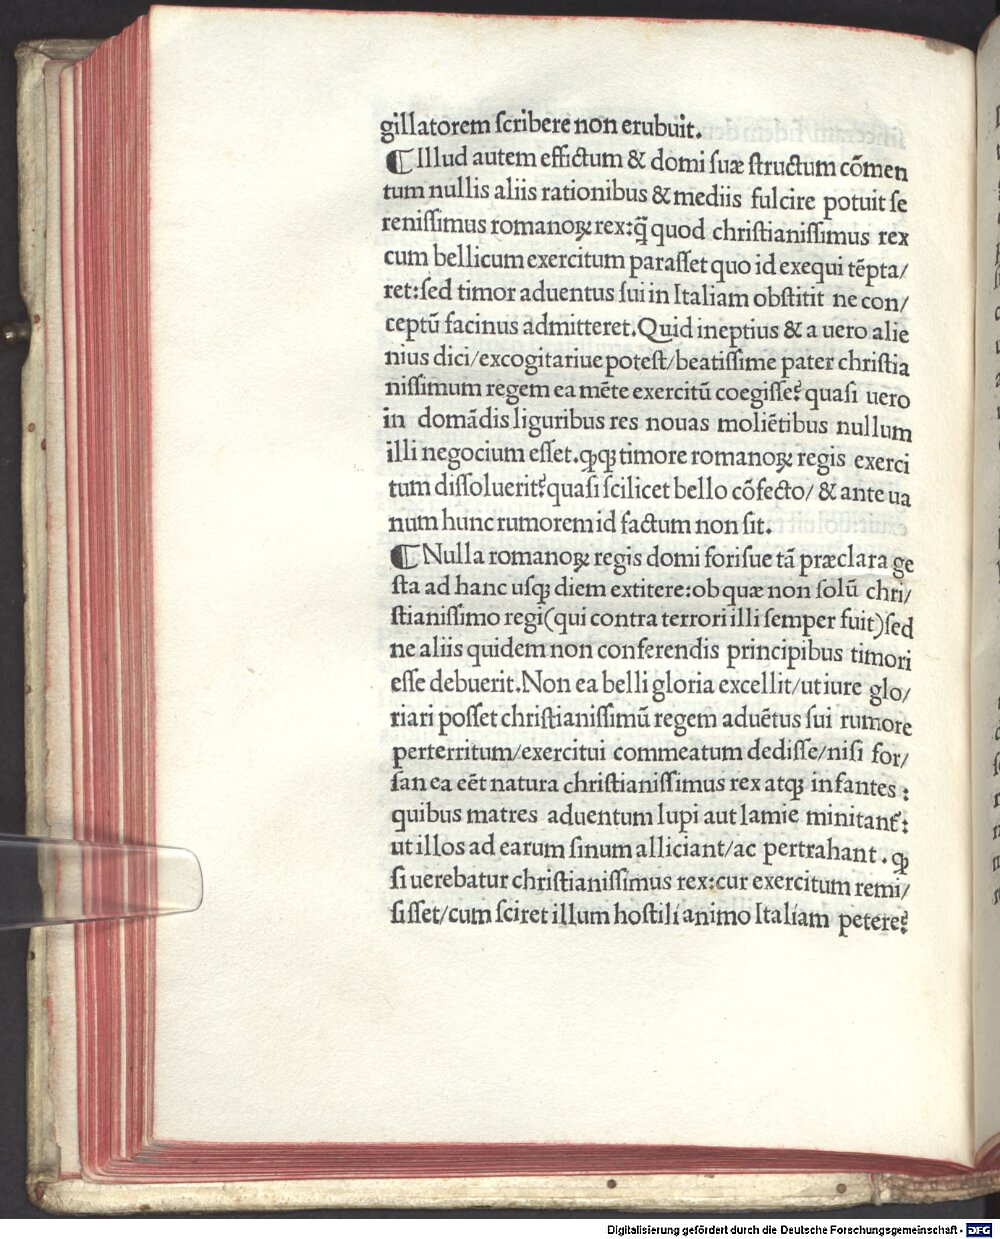 gillatorem ſcribere non erubuit.
⸿Illud autem effictum & domi ſuæ ſtructum cōmen
tum nullis aliis rationibus & mediis fulcire potuit ſe
reniſſimus romanoꝝ rex:q̄ quod chriſtianiſſimus rex
cum bellicum exercitum paraſſet quo id exequi tēpta/
ret:ſed timor aduentus ſui in Italiam obſtitit ne con/
ceptū facinus admitteret.Quid ineptius & a uero alie
nius dici/excogitariue poteſt/beatiſſime pater chriſtia
niſſimum regem ea mēte exercitū coegiſſe? quaſi uero
in domādis liguribus res nouas moliētibus nullum
illi negocium eſſet.ꝙꝙ timore romanoꝝ regis exerci
tum diſſoluerit?quaſi ſcilicet bello cōfecto/ & ante ua
num hunc rumorem id factum non ſit.
⸿Nulla romanoꝝ regis domi foriſue tā præclara ge
ſta ad hanc uſqꝫ diem extitere:ob quæ non ſolū chri/
ſtianiſſimo regi(qui contra terrori illi ſemper fuit)ſed
ne aliis quidem non conferendis principibus timori
eſſe debuerit.Non ea belli gloria excellit/ut iure glo/
riari poſſet chriſtianiſſimū regem aduētus ſui rumore
perterritum/exercitui commeatum dediſſe/niſi for/
ſan ea eēt natura chriſtianiſſimus rex atqꝫ infantes :
quibus matres aduentum lupi aut lamie minitant᷑:
ut illos ad earum ſinum alliciant/ac pertrahant . ꝙ
ſi uerebatur chriſtianiſſimus rex:cur exercitum remi/
ſiſſet/cum ſciret illum hoſtili animo Italiam petere?
Digitalisierung gefördert durch die Deutsche Forschungsgemeinschaft - DFG